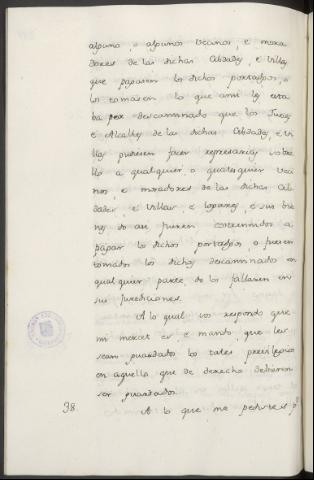 alguno, o algunos vecinos, e mora
dores de las dichas Cibdades, e Villas
que pagasen los dichos portadgos, o
les tomasen lo que ansi les esta
ba por descaminado que los Jueces
e Alcalles de las dichas Cibdades, e Vi
llas pudiesen facer represarias sobre
llo a qualquier, o qualesquier veci
nos, e moradores de las dichas Cib
dades, e Villas, e logares, e sus bie
nes do asi fueren costreñidos a
pagar los dichos portadgos, o fueren
tomados los dichos descaminados en
qualquier parte do los fallasen en
sus juridiciones.
A lo qual vos respondo que
mi mercet es, e mando, que les
sean guardados los tales previllegios
en aquello que de derecho debieren
ser guardados.
38. A lo que me pedistes p.r